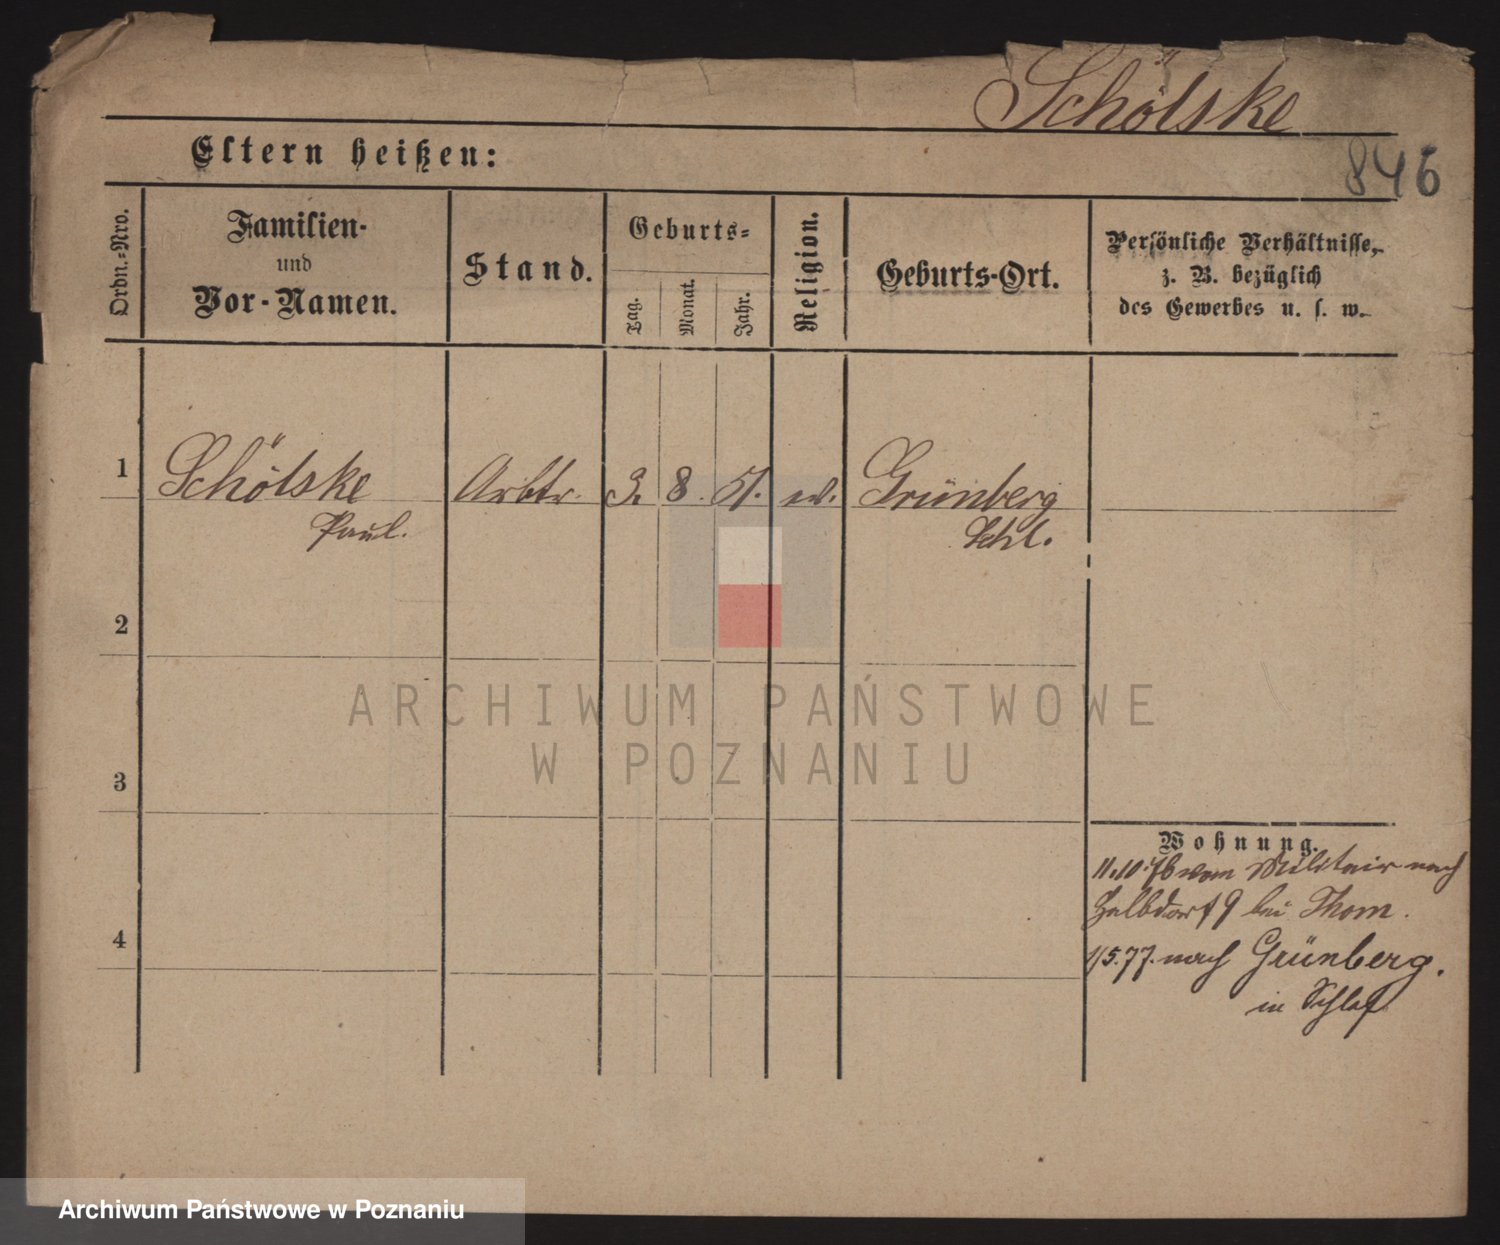 Schölske
Eltern heißen:
846
Ordn.-Nro.
Familien-
und
Vor-Namen.
Stand.
Geburts-
Tag.
Monat.
Jahr.
Religion.
Geburts-Ort.
Persönliche Verhältnisse,
z. B. bezüglich
des Gewerbes u. s. w.
1
Schölske
Paul.
Arbtr.
3.
8.
51.
ev.
Grünberg
Schl.
2
ARCHIWUM PAŃSTWOWE
W POZNANIU
3
Wohnung.
11.10.76 vom Militair nach
9 bei Thom.
4
1/5.77. nach Grünberg.
in
Archiwum Państwowe w Poznaniu